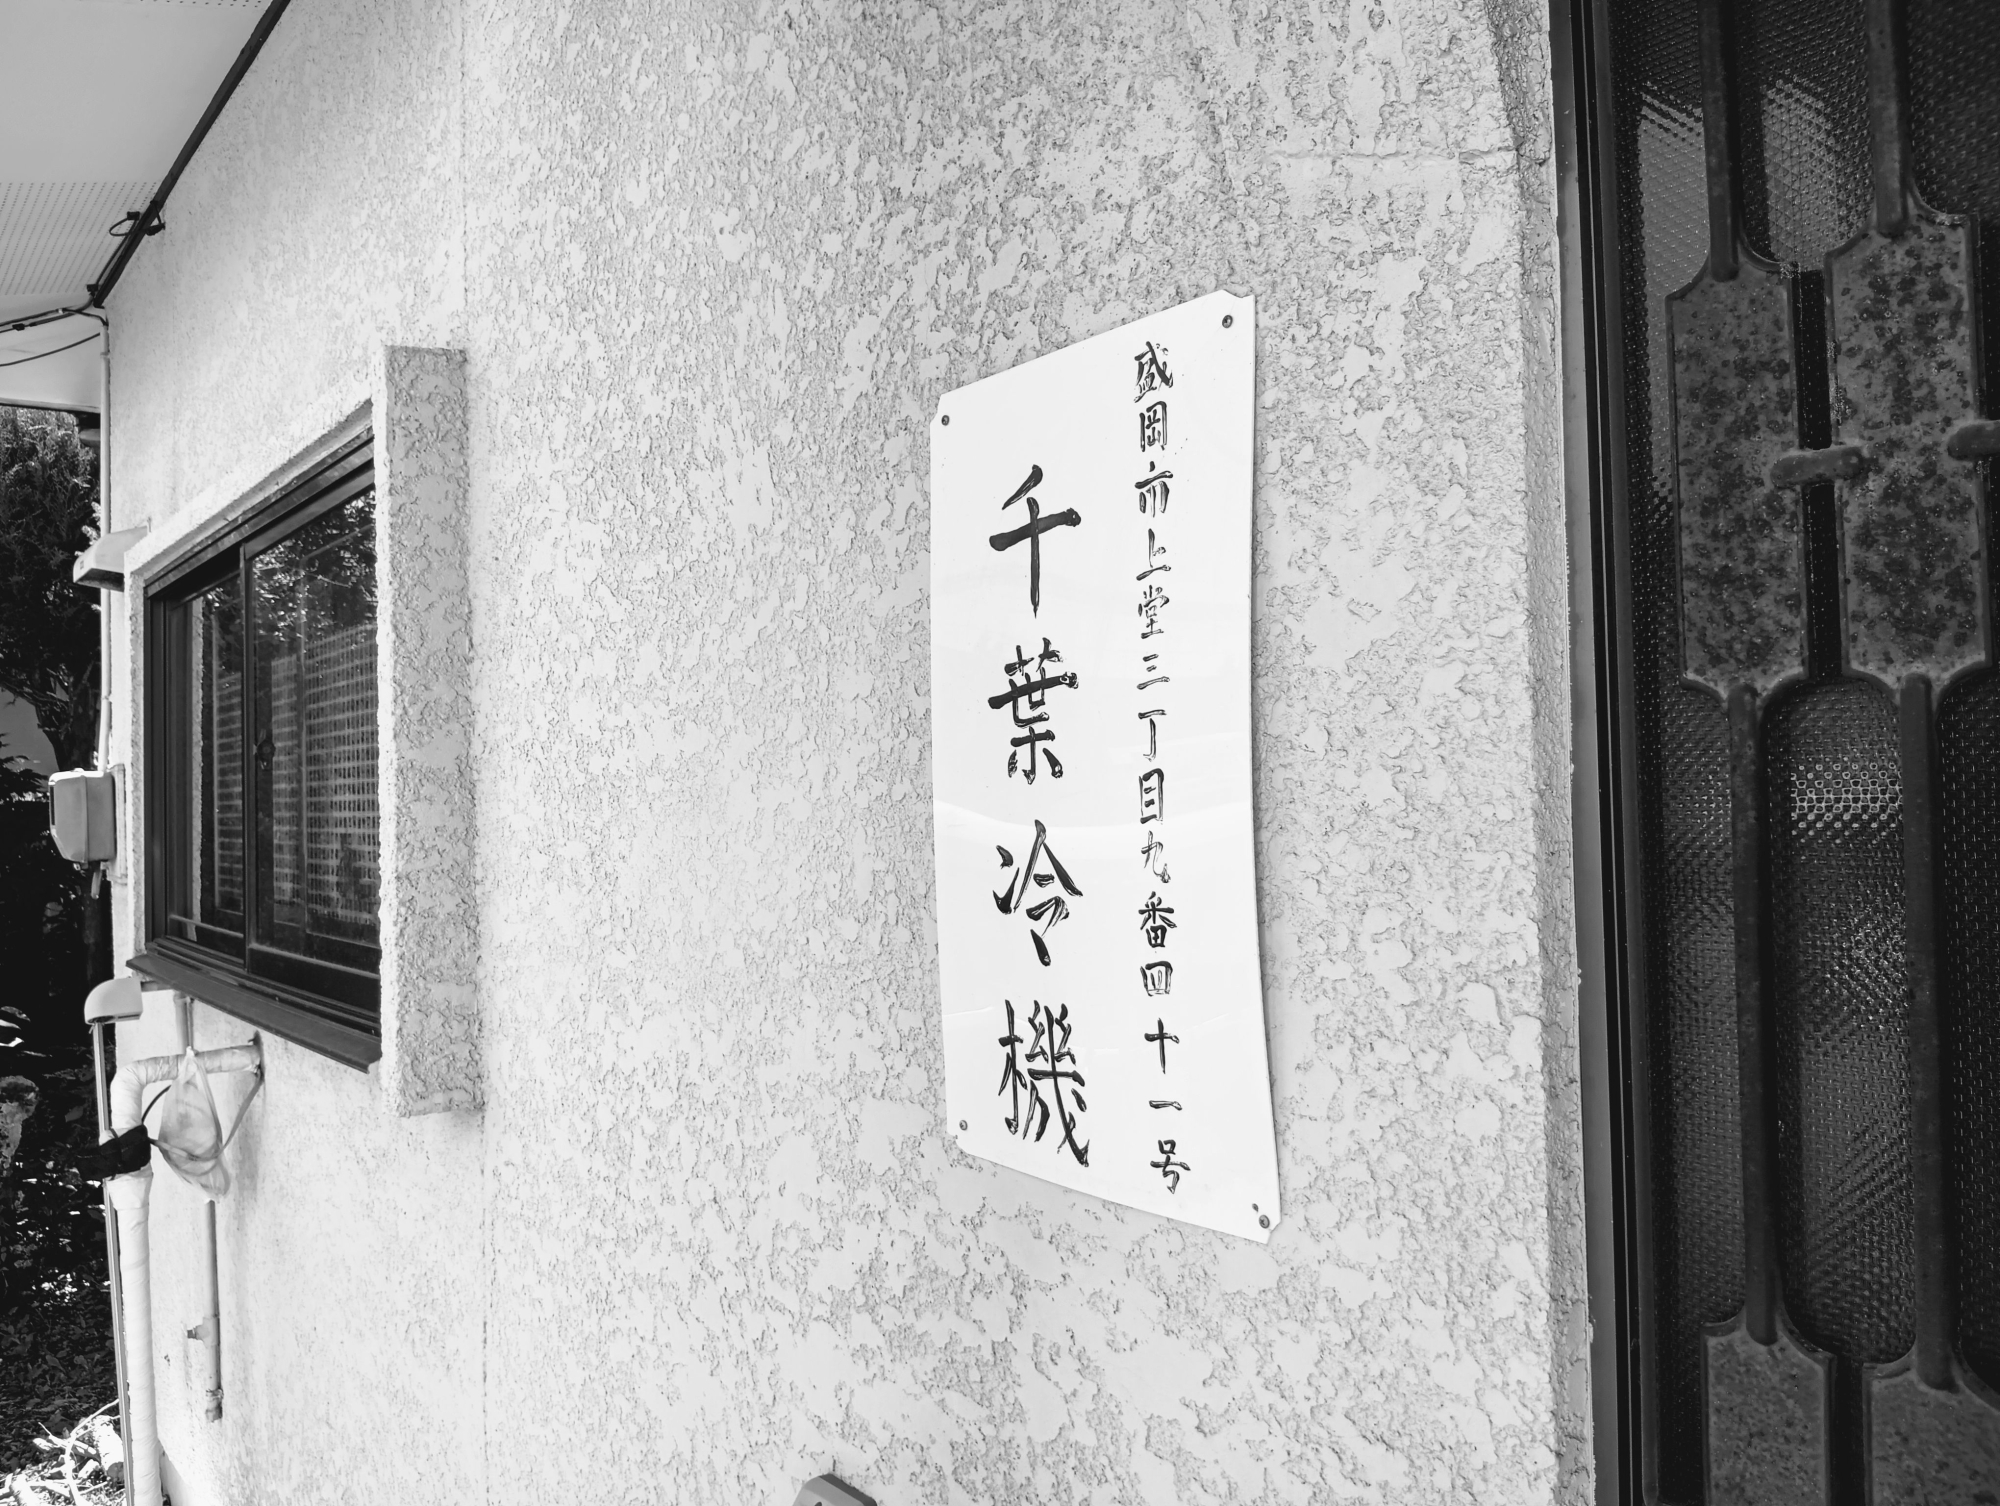 盛岡市上堂三丁目九番四十一号
千葉冷機